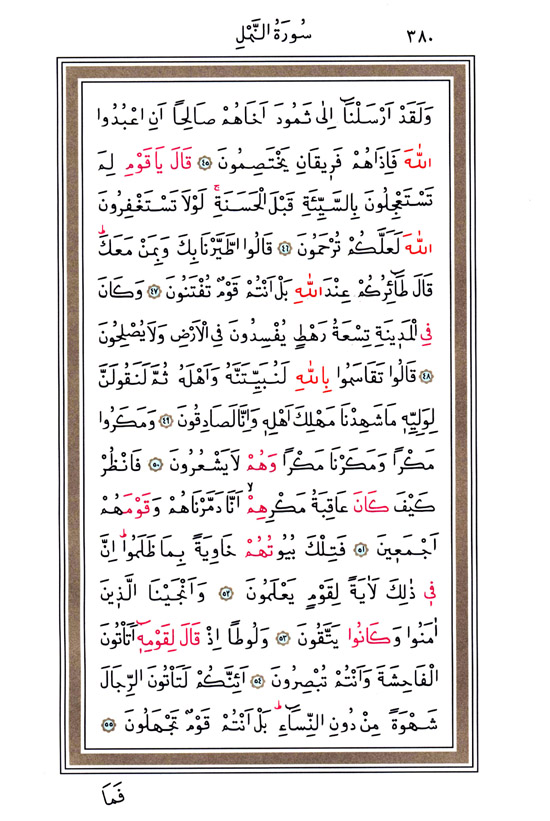 ٣٨٠ سُورَةُ النَّمْلِ
وَلَقَدْ اَرْسَلْنَٓا اِلٰى ثَمُودَ اَخَاهُمْ صَالِحًا اَنِ اعْبُدُوا
اللّٰهَ فَاِذَاهُمْ فَرٖيقَانِ يَخْتَصِمُونَ ﴿٤٥﴾ قَالَ يَاقَوْمِ لِمَ
تَسْتَعْجِلُونَ بِالسَّيِّئَةِ قَبْلَ الْحَسَنَةِۚ لَوْلَا تَسْتَغْفِرُونَ
اللّٰهَ لَعَلَّكُمْ تُرْحَمُونَ ﴿٤٦﴾ قَالُوا اطَّيَّرْنَابِكَ وَبِمَنْ مَعَكَۜ
قَالَ طَٓائِرُكُمْ عِنْدَ اللّٰهِ بَلْ اَنْتُمْ قَوْمٌ تُفْتَنُونَ ﴿٤٧﴾ وَكَانَ
فِي الْمَدٖينَةِ تِسْعَةُ رَهْطٍ يُفْسِدُونَ فِي الْاَرْضِ وَلَايُصْلِحُونَ
﴿٤٨﴾ قَالُوا تَقَاسَمُوا بِاللّٰهِ لَنُبَيِّتَنَّهُ وَاَهْلَهُ ثُمَّ لَنَقُولَنَّ
لِوَلِيِّهٖ مَاشَهِدْنَا مَهْلِكَ اَهْلِهٖ وَاِنَّالَصَادِقُونَ ﴿٤٩﴾ وَمَكَرُوا
مَكْرًا وَمَكَرْنَا مَكْرًا وَهُمْ لَايَشْعُرُونَ ﴿٥٠﴾ فَانْظُرْ
كَيْفَ كَانَ عَاقِبَةُ مَكْرِهِمْۙ اَنَّا دَمَّرْنَاهُمْ وَقَوْمَهُمْ
اَجْمَعٖينَ ﴿٥١﴾ فَتِلْكَ بُيُوتُهُمْ خَاوِيَةً بِمَا ظَلَمُواۜ اِنَّ
فٖي ذٰلِكَ لَاٰيَةً لِقَوْمٍ يَعْلَمُونَ ﴿٥٢﴾ وَاَنْجَيْنَا الَّذٖينَ
اٰمَنُوا وَكَانُوا يَتَّقُونَ ﴿٥٣﴾ وَلُوطًا اِذْ قَالَ لِقَوْمِهٖٓ اَتَأْتُونَ
الْفَاحِشَةَ وَاَنْتُمْ تُبْصِرُونَ ﴿٥٤﴾ اَئِنَّكُمْ لَتَأْتُونَ الرِّجَالَ
شَهْوَةً مِنْ دُونِ النِّسَٓاءِۜ بَلْ اَنْتُمْ قَوْمٌ تَجْهَلُونَ ﴿٥٥﴾
فَمَا